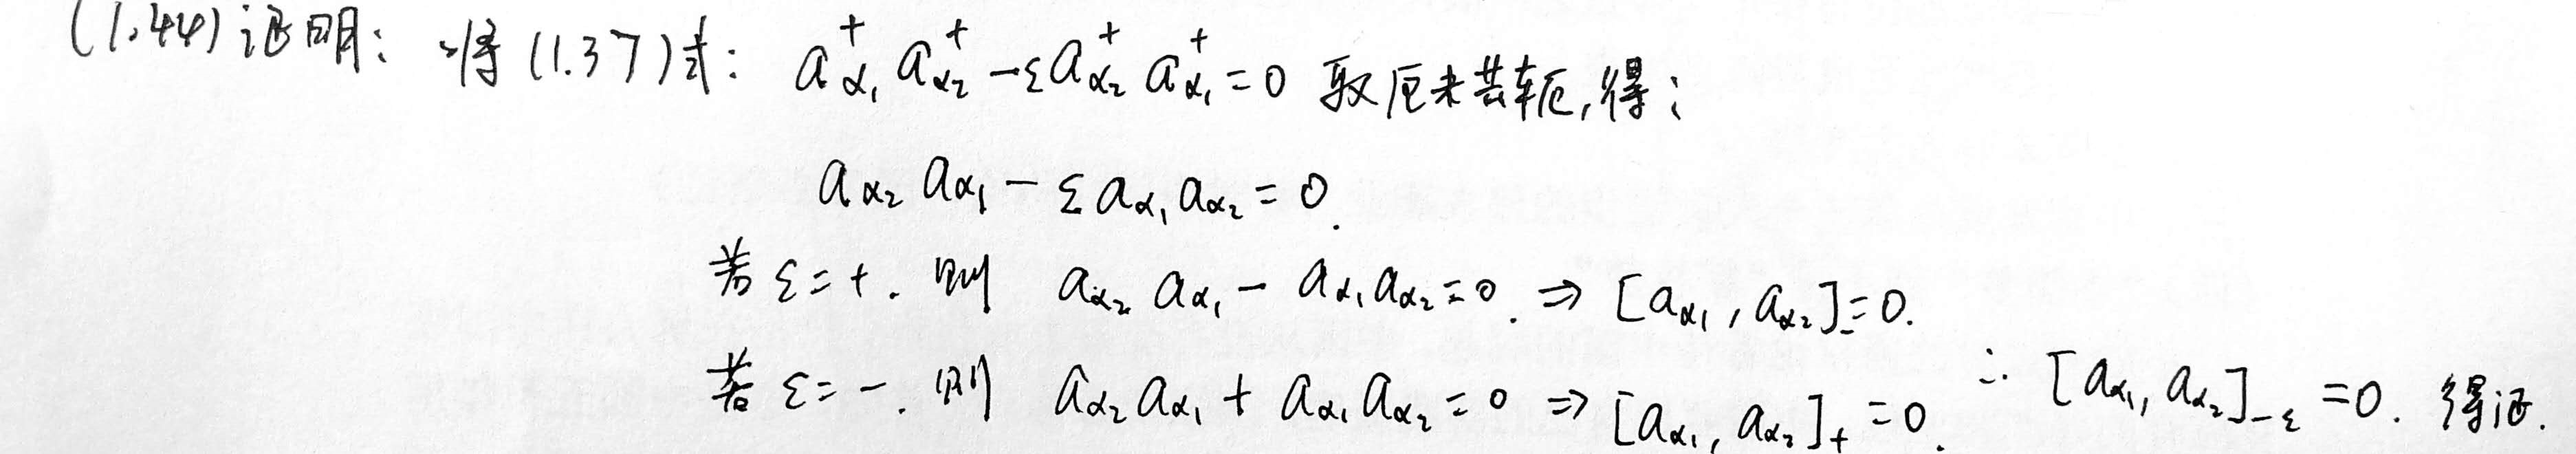 (1.44)证明: 将(1.37)式: a⁺_{α₁} a⁺_{α₂} - ε a⁺_{α₂} a⁺_{α₁} = 0 取厄米共轭,得:
a_{α₂} a_{α₁} - ε a_{α₁} a_{α₂} = 0.
若 ε = +. 则 a_{α₂} a_{α₁} - a_{α₁} a_{α₂} = 0. ⇒ [a_{α₁}, a_{α₂}]_- = 0.
若 ε = -. 则 a_{α₂} a_{α₁} + a_{α₁} a_{α₂} = 0 ⇒ [a_{α₁}, a_{α₂}]_+ = 0. ∴ [a_{α₁}, a_{α₂}]_{-ε} = 0. 得证.